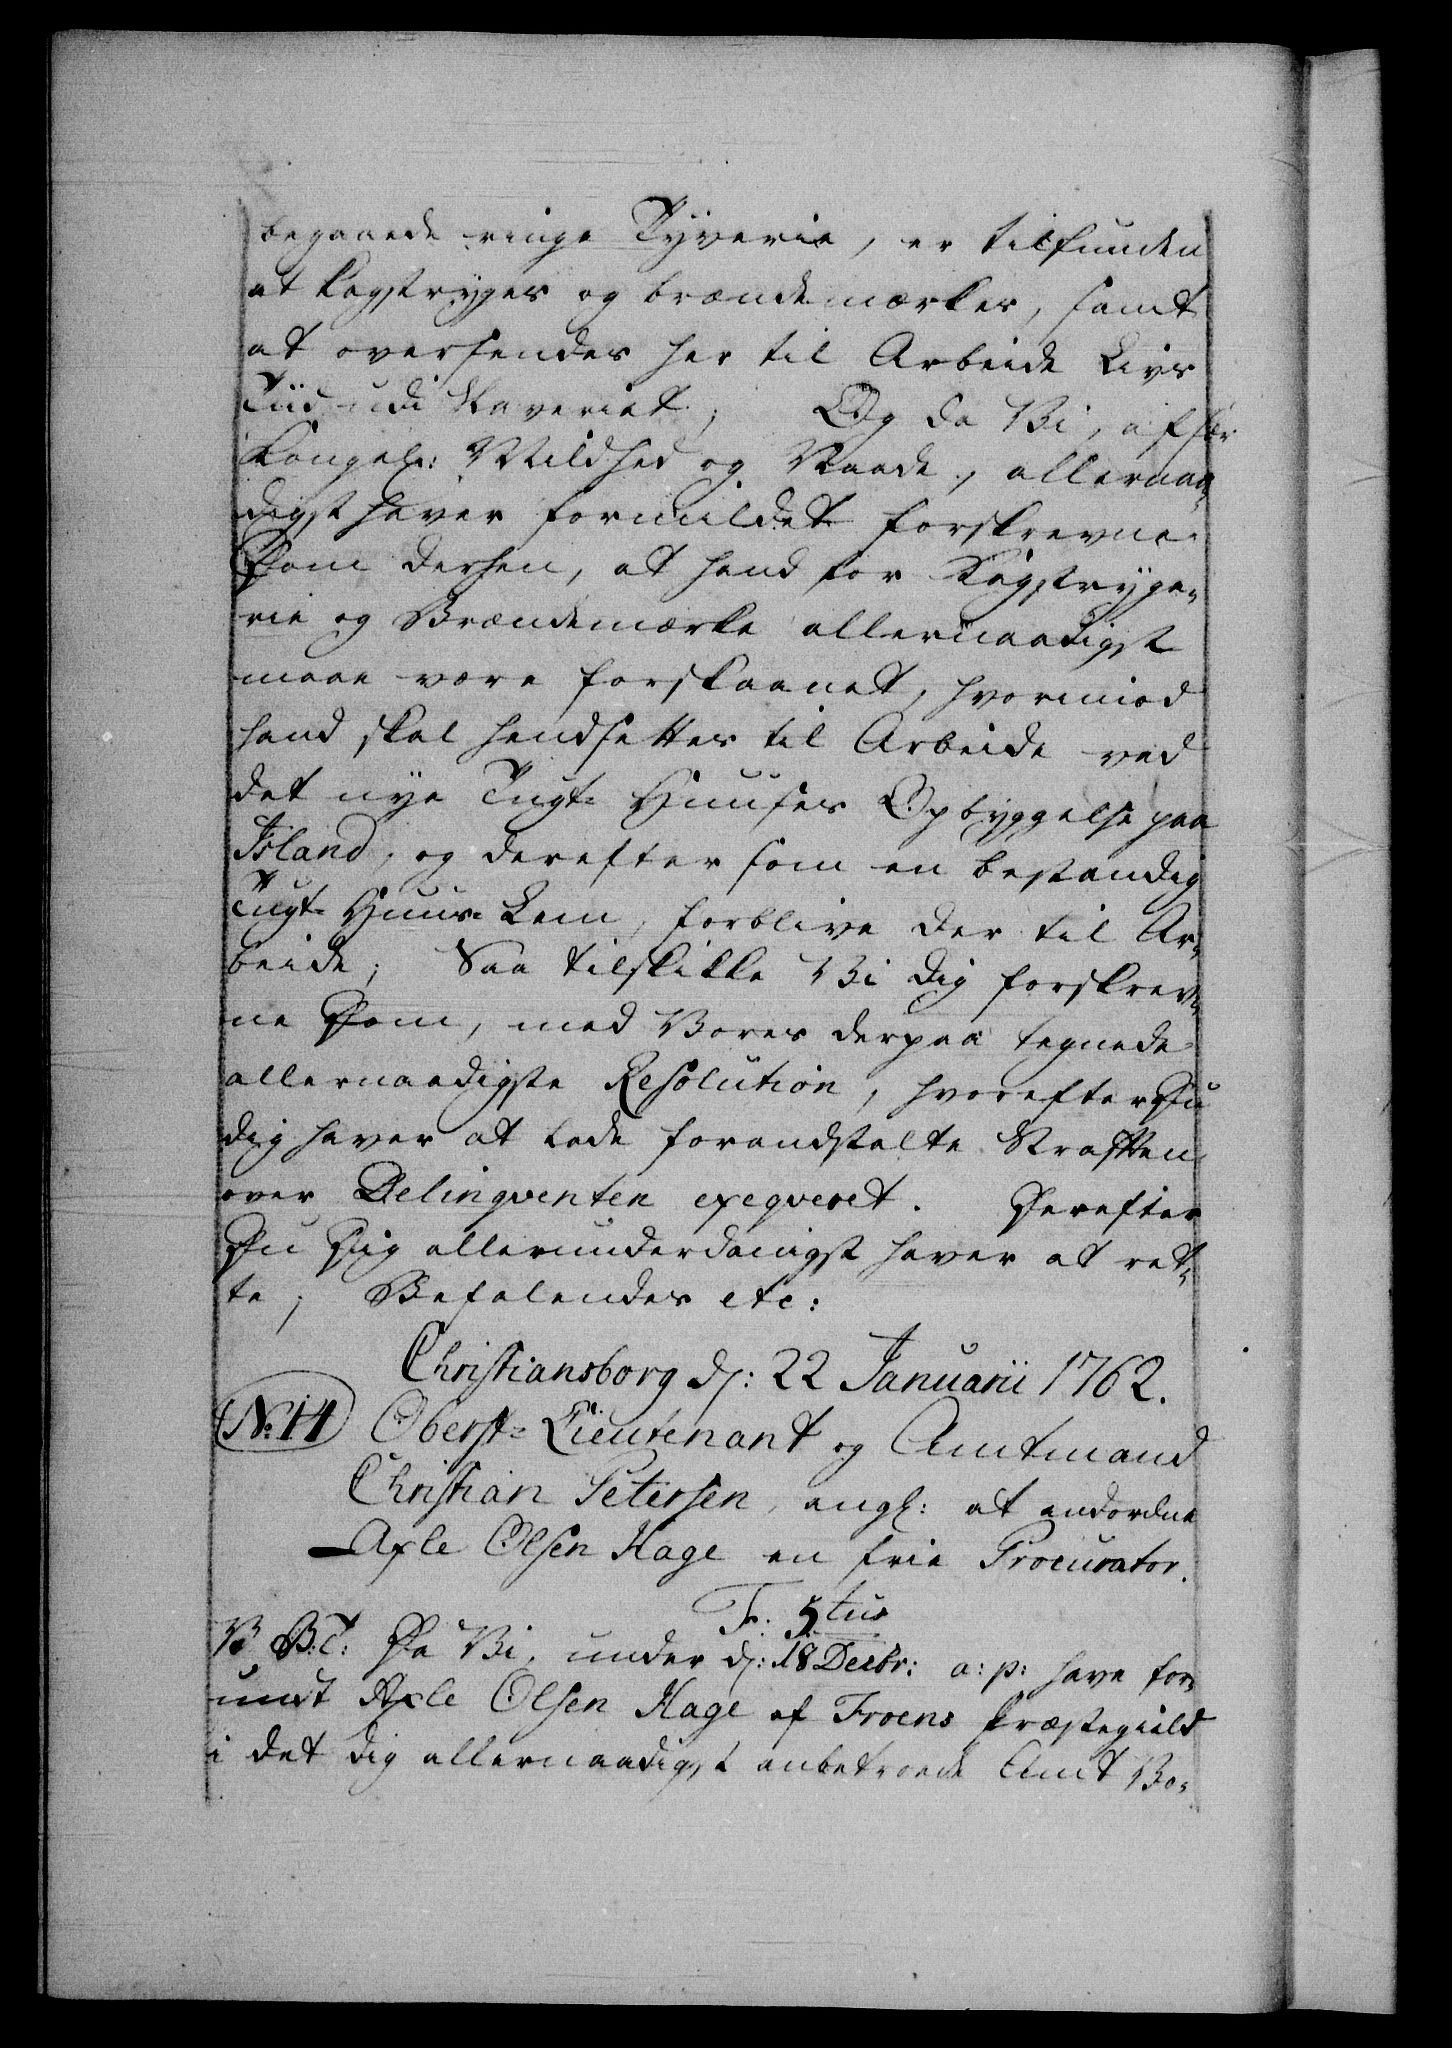 begaaede ringe Tyverie, er tilfunden
at kagstryges og brændemærkes, samt
at oversendes her til Arbeide Livs
Tiid udi Slaveriet; Og da Vi, af sær
Kongel: Mildhed og Naade, allernaa-
digst haver formildet forskrevne
Dom derhen, at hand for Kagstryge-
rie og Brændemærke allernaadigst
maae være forskaanet, hvorimod
hand skal hendsettes til Arbeide ved
det nye Tugt-Huuses Opbyggelse paa
Island, og derefter som en bestandig
Tugt-Huus-Lem, forblive der til Ar-
beide; Saa tilskikke Vi dig forskrev-
ne Dom, med Vores derpaa tegnede
allernaadigste Resolution, hvorefter Du
dig haver at lade foranstalte Straffen
over Delinqventen exeqveret. Derefter
Du Dig allerunderdanigst haver at ret-
te; Befalendes etc:
Christiansborg d: 22 Januarii 1762.
No: 14 Oberst-Lieutenant og Amtmand
Christian Petersen, angl: at andordne
Axle Olsen Hage en frie Procurator.
F. 5tus
V. B: T: Da Vi, under d: 18 Decbr: a: p: have for-
undt Axle Olsen Hage af Froens Præstegield
i det dig allernaadigst anbetroede Amt Vo-